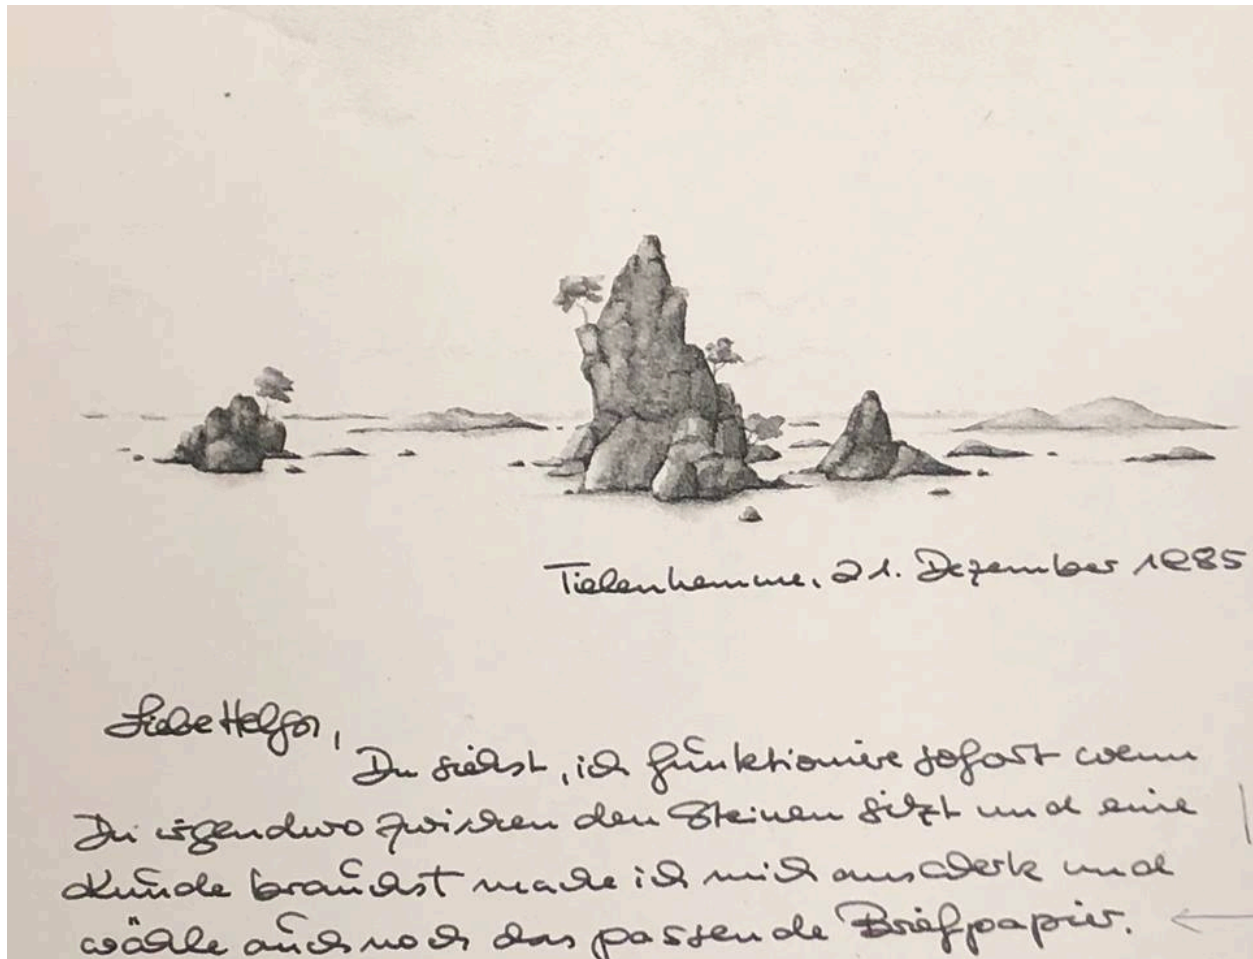 Tielenhemme, 21. Dezember 1985
Liebe Helga,
Du siehst, ich funktioniere sofort wenn
Du irgendwo zwischen den Steinen sitzt und eine
Kunde brauchst mache ich mich ans Werk und
wähle auch noch das passende Briefpapier.